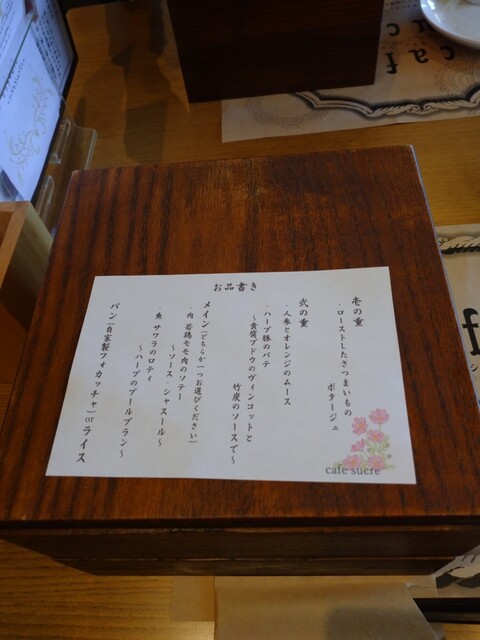 お品書き
壱の重
・ローストしたさつまいもの
ポタージュ
弐の重
・人参とオレンジのムース
・ハーブ豚のパテ
～貴腐ブドウのヴィンコットと
竹炭のソースで～
メイン(どちらか一つお選びください)
・肉 若鶏モモ肉のソテー
～ソース・シャスール～
・魚 サワラのロティ
～ハーブのブールブラン～
パン(自家製フォカッチャ)orライス
cafe sucre